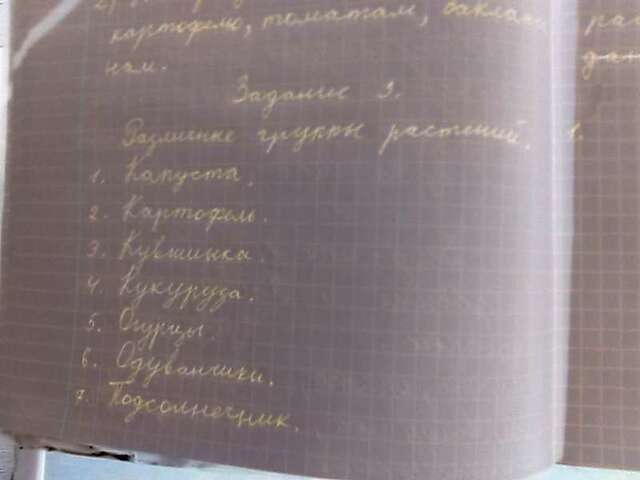 картофелю, томатам, баклажа
нам.
Задание 3.
Различные группы растений.
1. Капуста.
2. Картофель.
3. Кувшинка.
4. Кукуруза.
5. Огурцы.
6. Одуванчики.
7. Подсолнечник.
1.